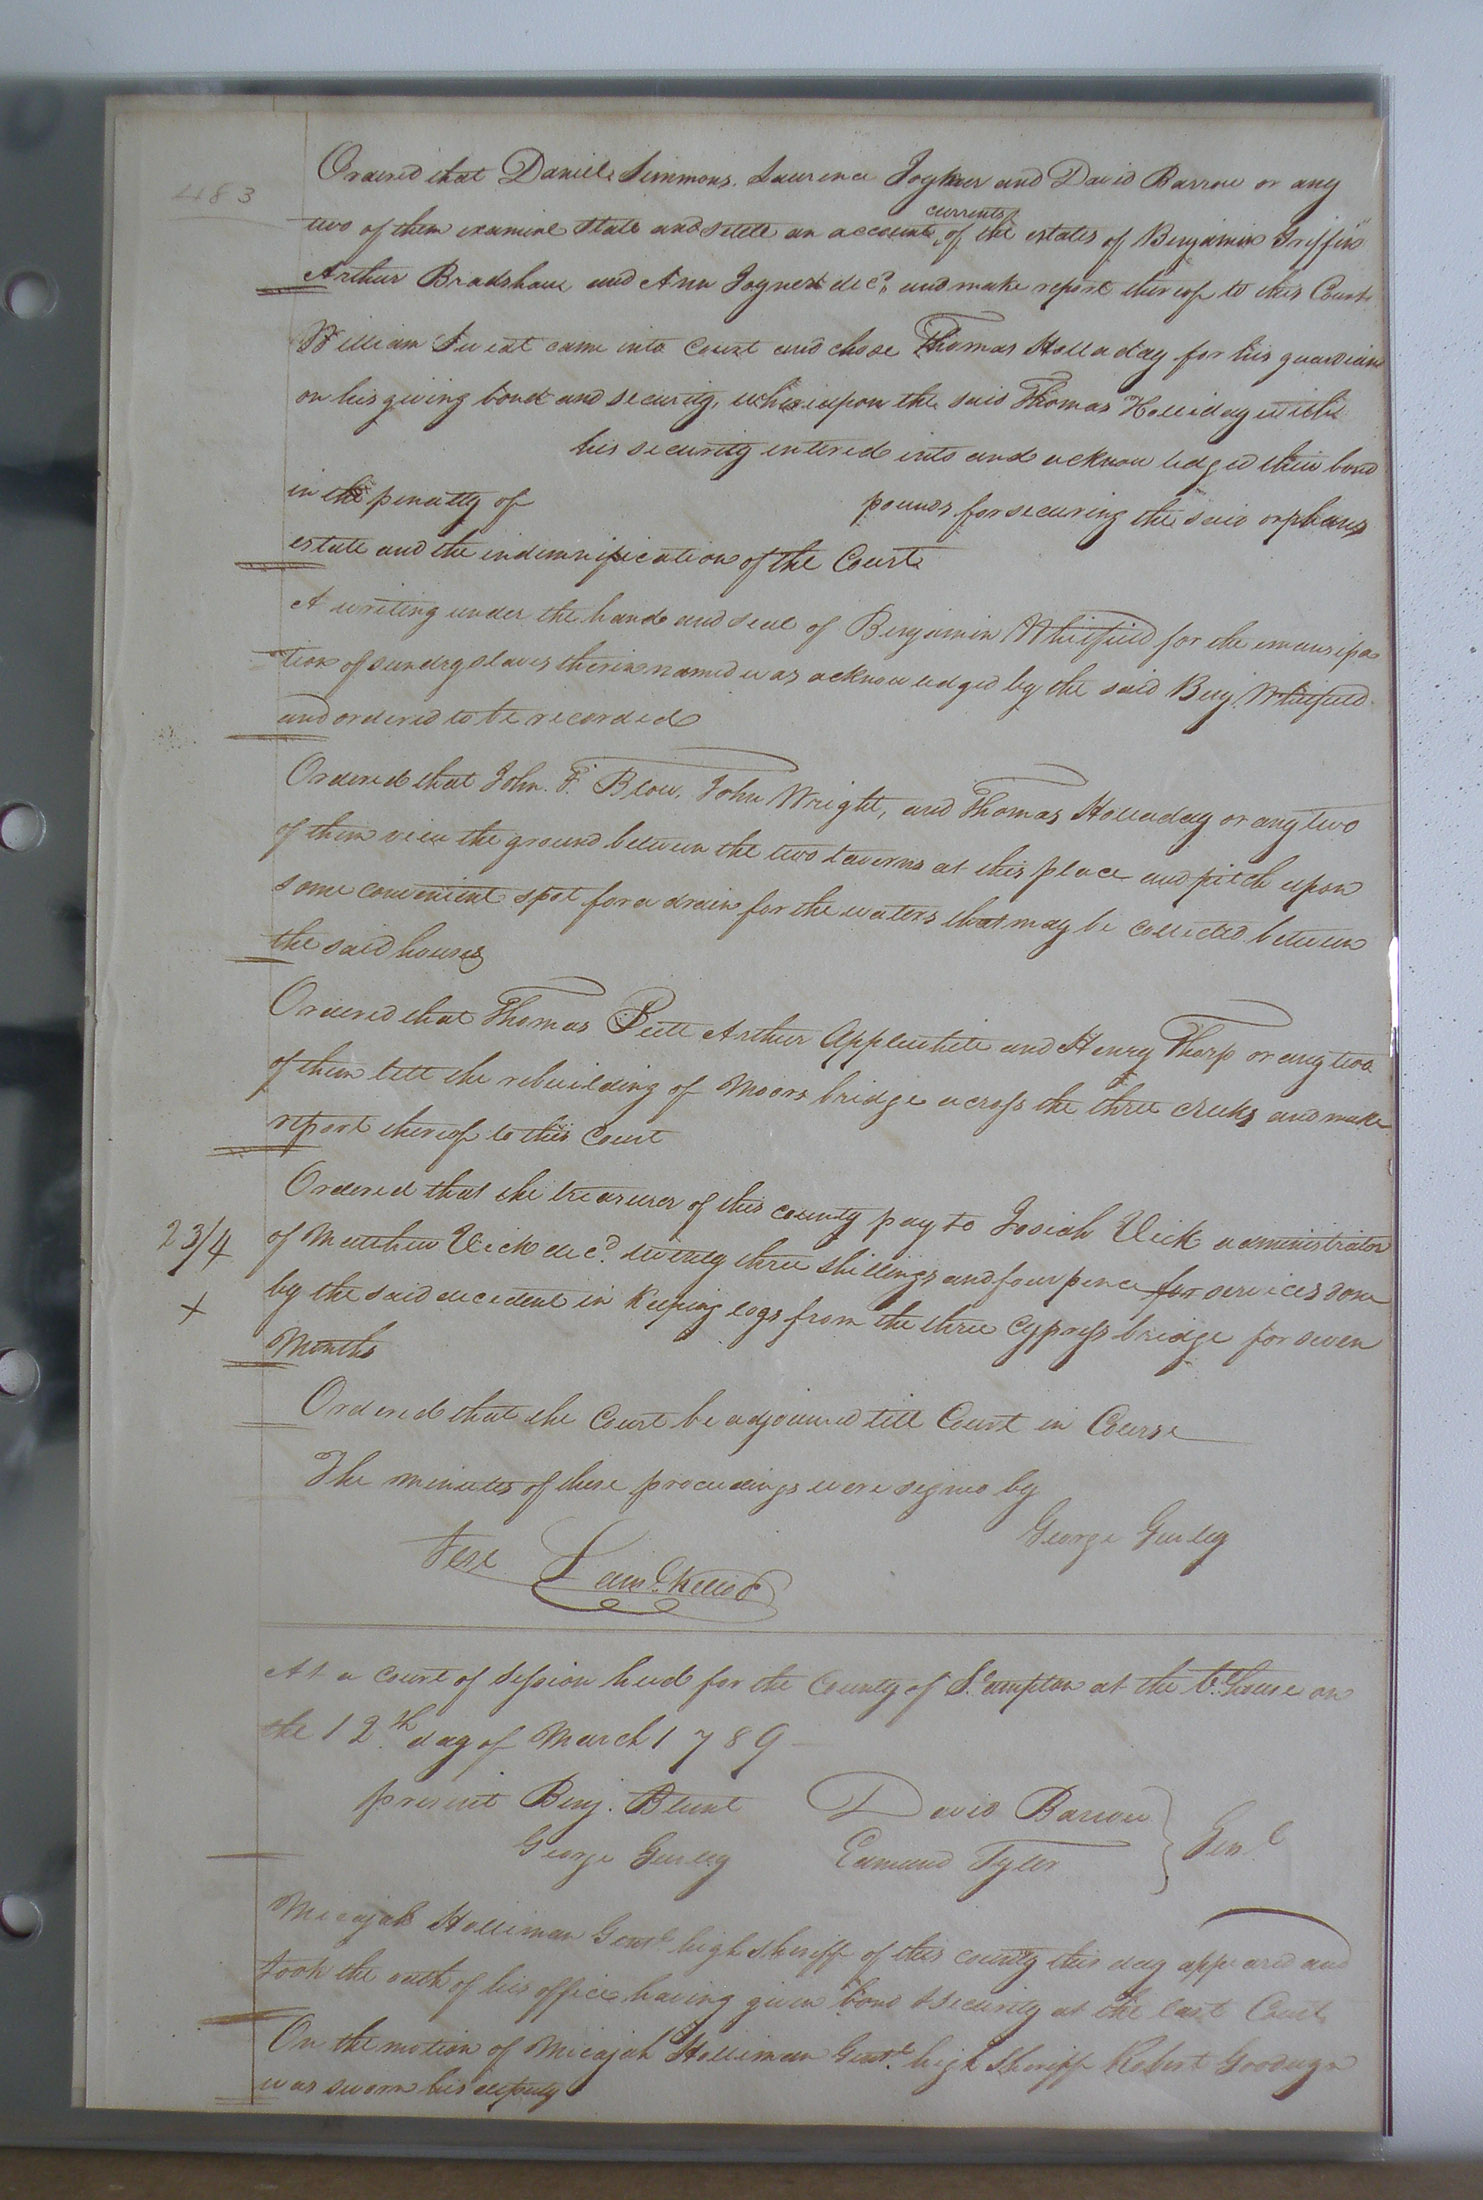 483
Ordered that Daniel Simmons, Laurence Joyner and David Barrow or any
two of them examine state and settle an account currents of the estates of Benjamin Griffin
Arthur Bradshaw and Ann Joyner decd. and make report thereof to this Court
William Sweat came into Court and chose Thomas Holladay for his guardian
on his giving bond and security, whereupon the said Thomas Holliday with
his security entered into and acknowledged their bond
in the penalty of pounds for securing the said orphans
estate and the indemnification of the Court
A writing under the hand and seal of Benjamin Whitfield for the emancipa
tion of sundry slaves therein named was acknowledged by the said Benj Whitfield
and ordered to be recorded
Ordered that John. F. Blow, John Wright, and Thomas Holladay or any two
of them view the ground between the two taverns at this place and pitch upon
some convenient spot for a drain for the waters that may be collected between
the said houses
Ordered that Thomas Pitt Arthur Applewhite and Henry Tharp or any two
of them lett the rebuilding of Moors bridge across the three creeks and make
report thereof to this Court
Ordered that the treasurer of this county pay to Josiah Vick administrator
23/4
of Matthew Vick decd. twenty three shillings and four pence for services done
+
by the said decedent in keeping logs from the three Cypress bridge for seven
Months
Ordered that the Court be adjourned till Court in Course
The minutes of these proceedings were signed by
George Gurley
Test Saml. Kello
At a Court of Session held for the County of S.ampton at the C. House on
the 12th day of March 1789
present Benj. Blunt David Barrow
George Gurley Edmund Tyler Gent
Micajah Holliman Gentl. high Sheriff of this county this day appeared and
took the oath of his office having given bond & security at the last Court
On the motion of Micajah Holliman Gentl. high Sheriff Robert Goodwyn
was sworn his deputy